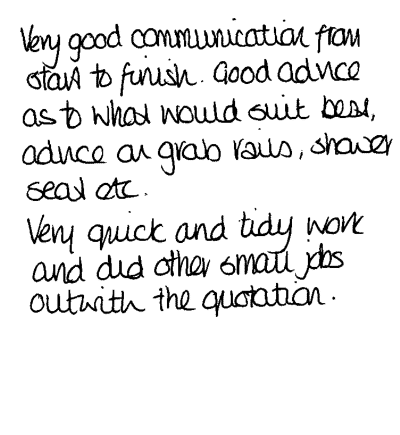 Very good communication from
start to finish. Good advice
as to what would suit best,
advice on grab rails, shower
seat etc.
Very quick and tidy work
and did other small jobs
outwith the quotation.